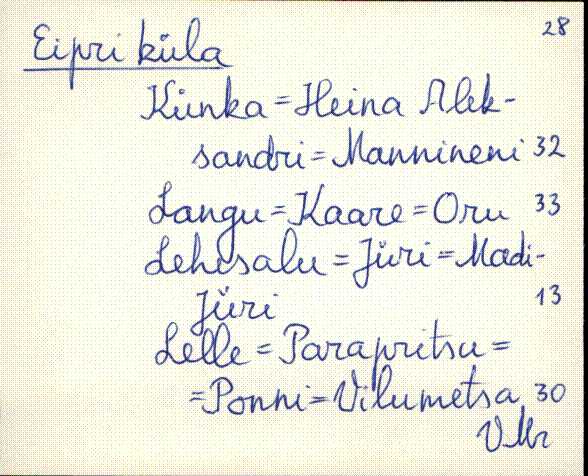 28
Eipri küla
Künka = Heina Alek-
sandri = Mannineni 32
Langu = Kaare = Oru 33
Lehesalu = Jüri = Madi-
Jüri 13
Lelle = Parapritsu =
= Ponni = Vilumetsa 30